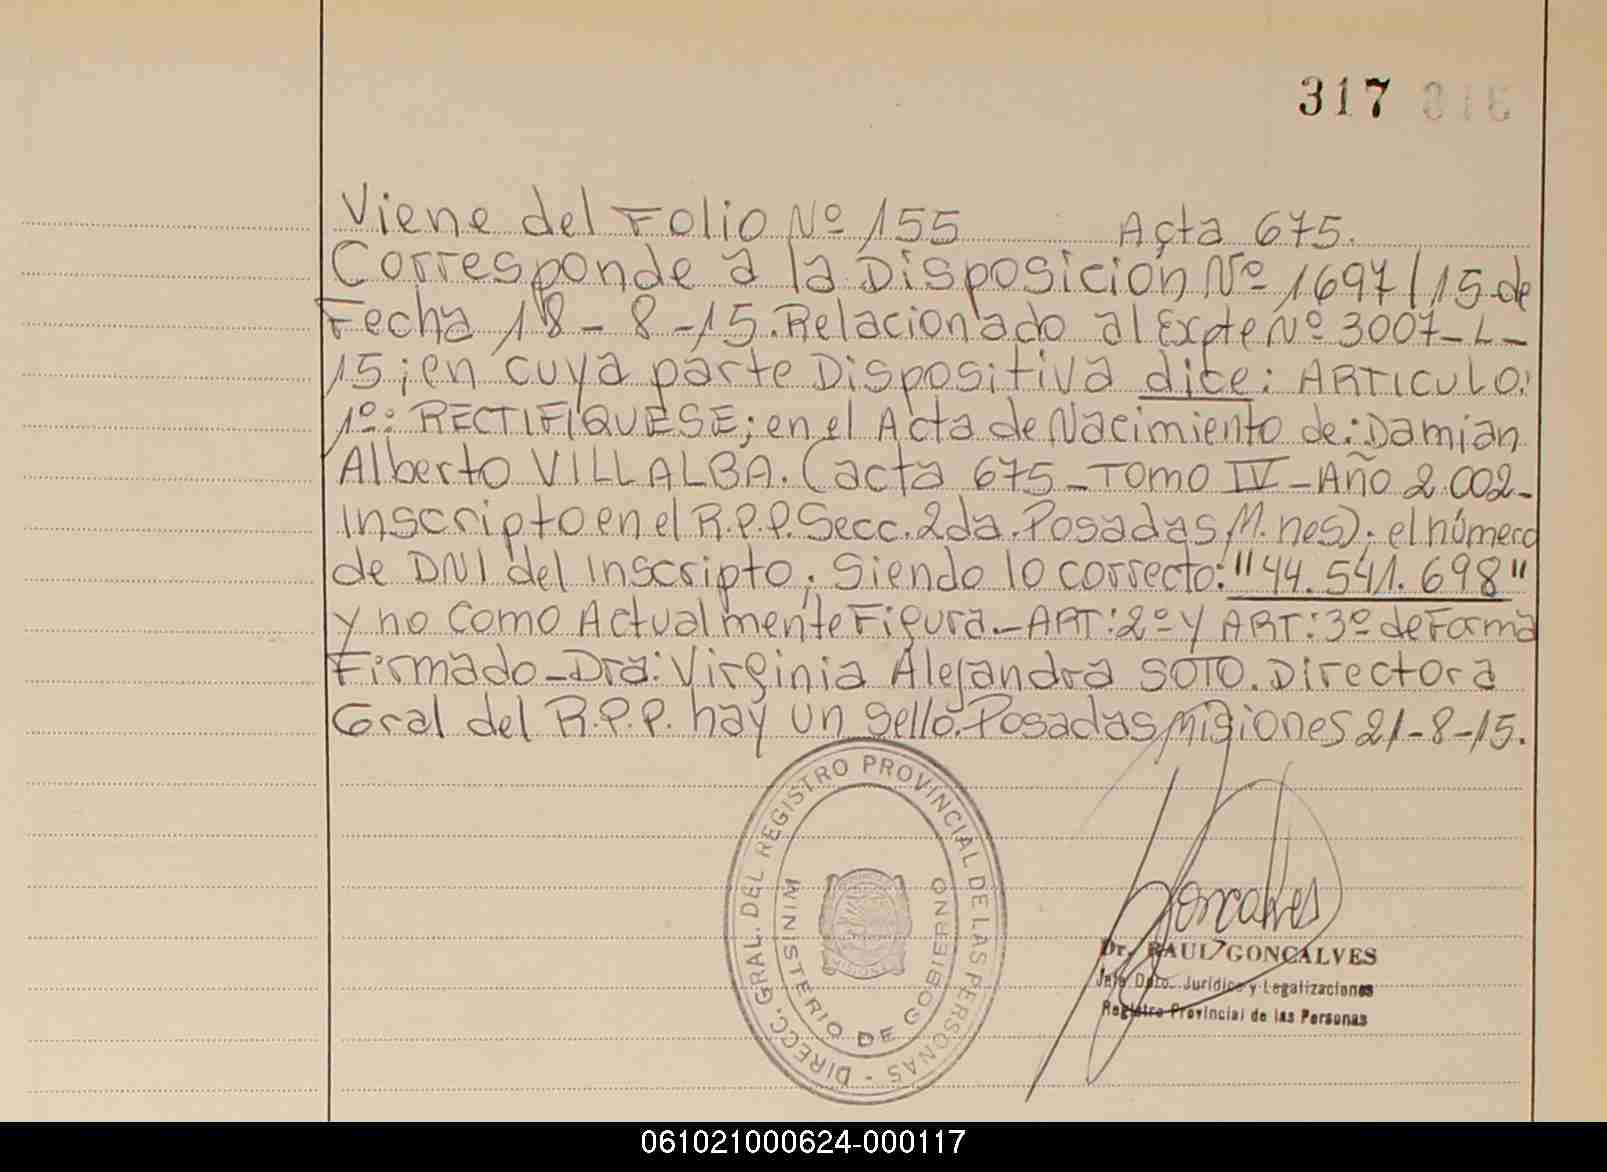 317 316
Viene del Folio Nº 155 Acta 675.
Corresponde a la Disposición Nº 1697/15 de
Fecha 18-8-15. Relacionado al Expte Nº 3007-L-
15; en cuya parte Dispositiva dice: ARTICULO:
1º: RECTIFIQUESE; en el Acta de Nacimiento de: Damian
Alberto VILLALBA. (acta 675 - Tomo IV - Año 2.002 -
Inscripto en el R.P.P. Secc. 2da. Posadas M.nes); el número
de DNI del inscripto; siendo lo correcto: "44.541.698"
y no como Actualmente Figura.- ART: 2º y ART: 3º de Forma
Firmado - Dra: Virginia Alejandra SOTO. Directora
Gral del R.P.P. hay un sello. Posadas Misiones 21-8-15.
DIRECC. GRAL. DEL REGISTRO PROVINCIAL DE LAS PERSONAS -
MINISTERIO DE GOBIERNO
MISIONES
Goncalves
Dr. RAUL GONCALVES
Jefe Dpto. Jurídico y Legalizaciones
Registro Provincial de las Personas
061021000624-000117